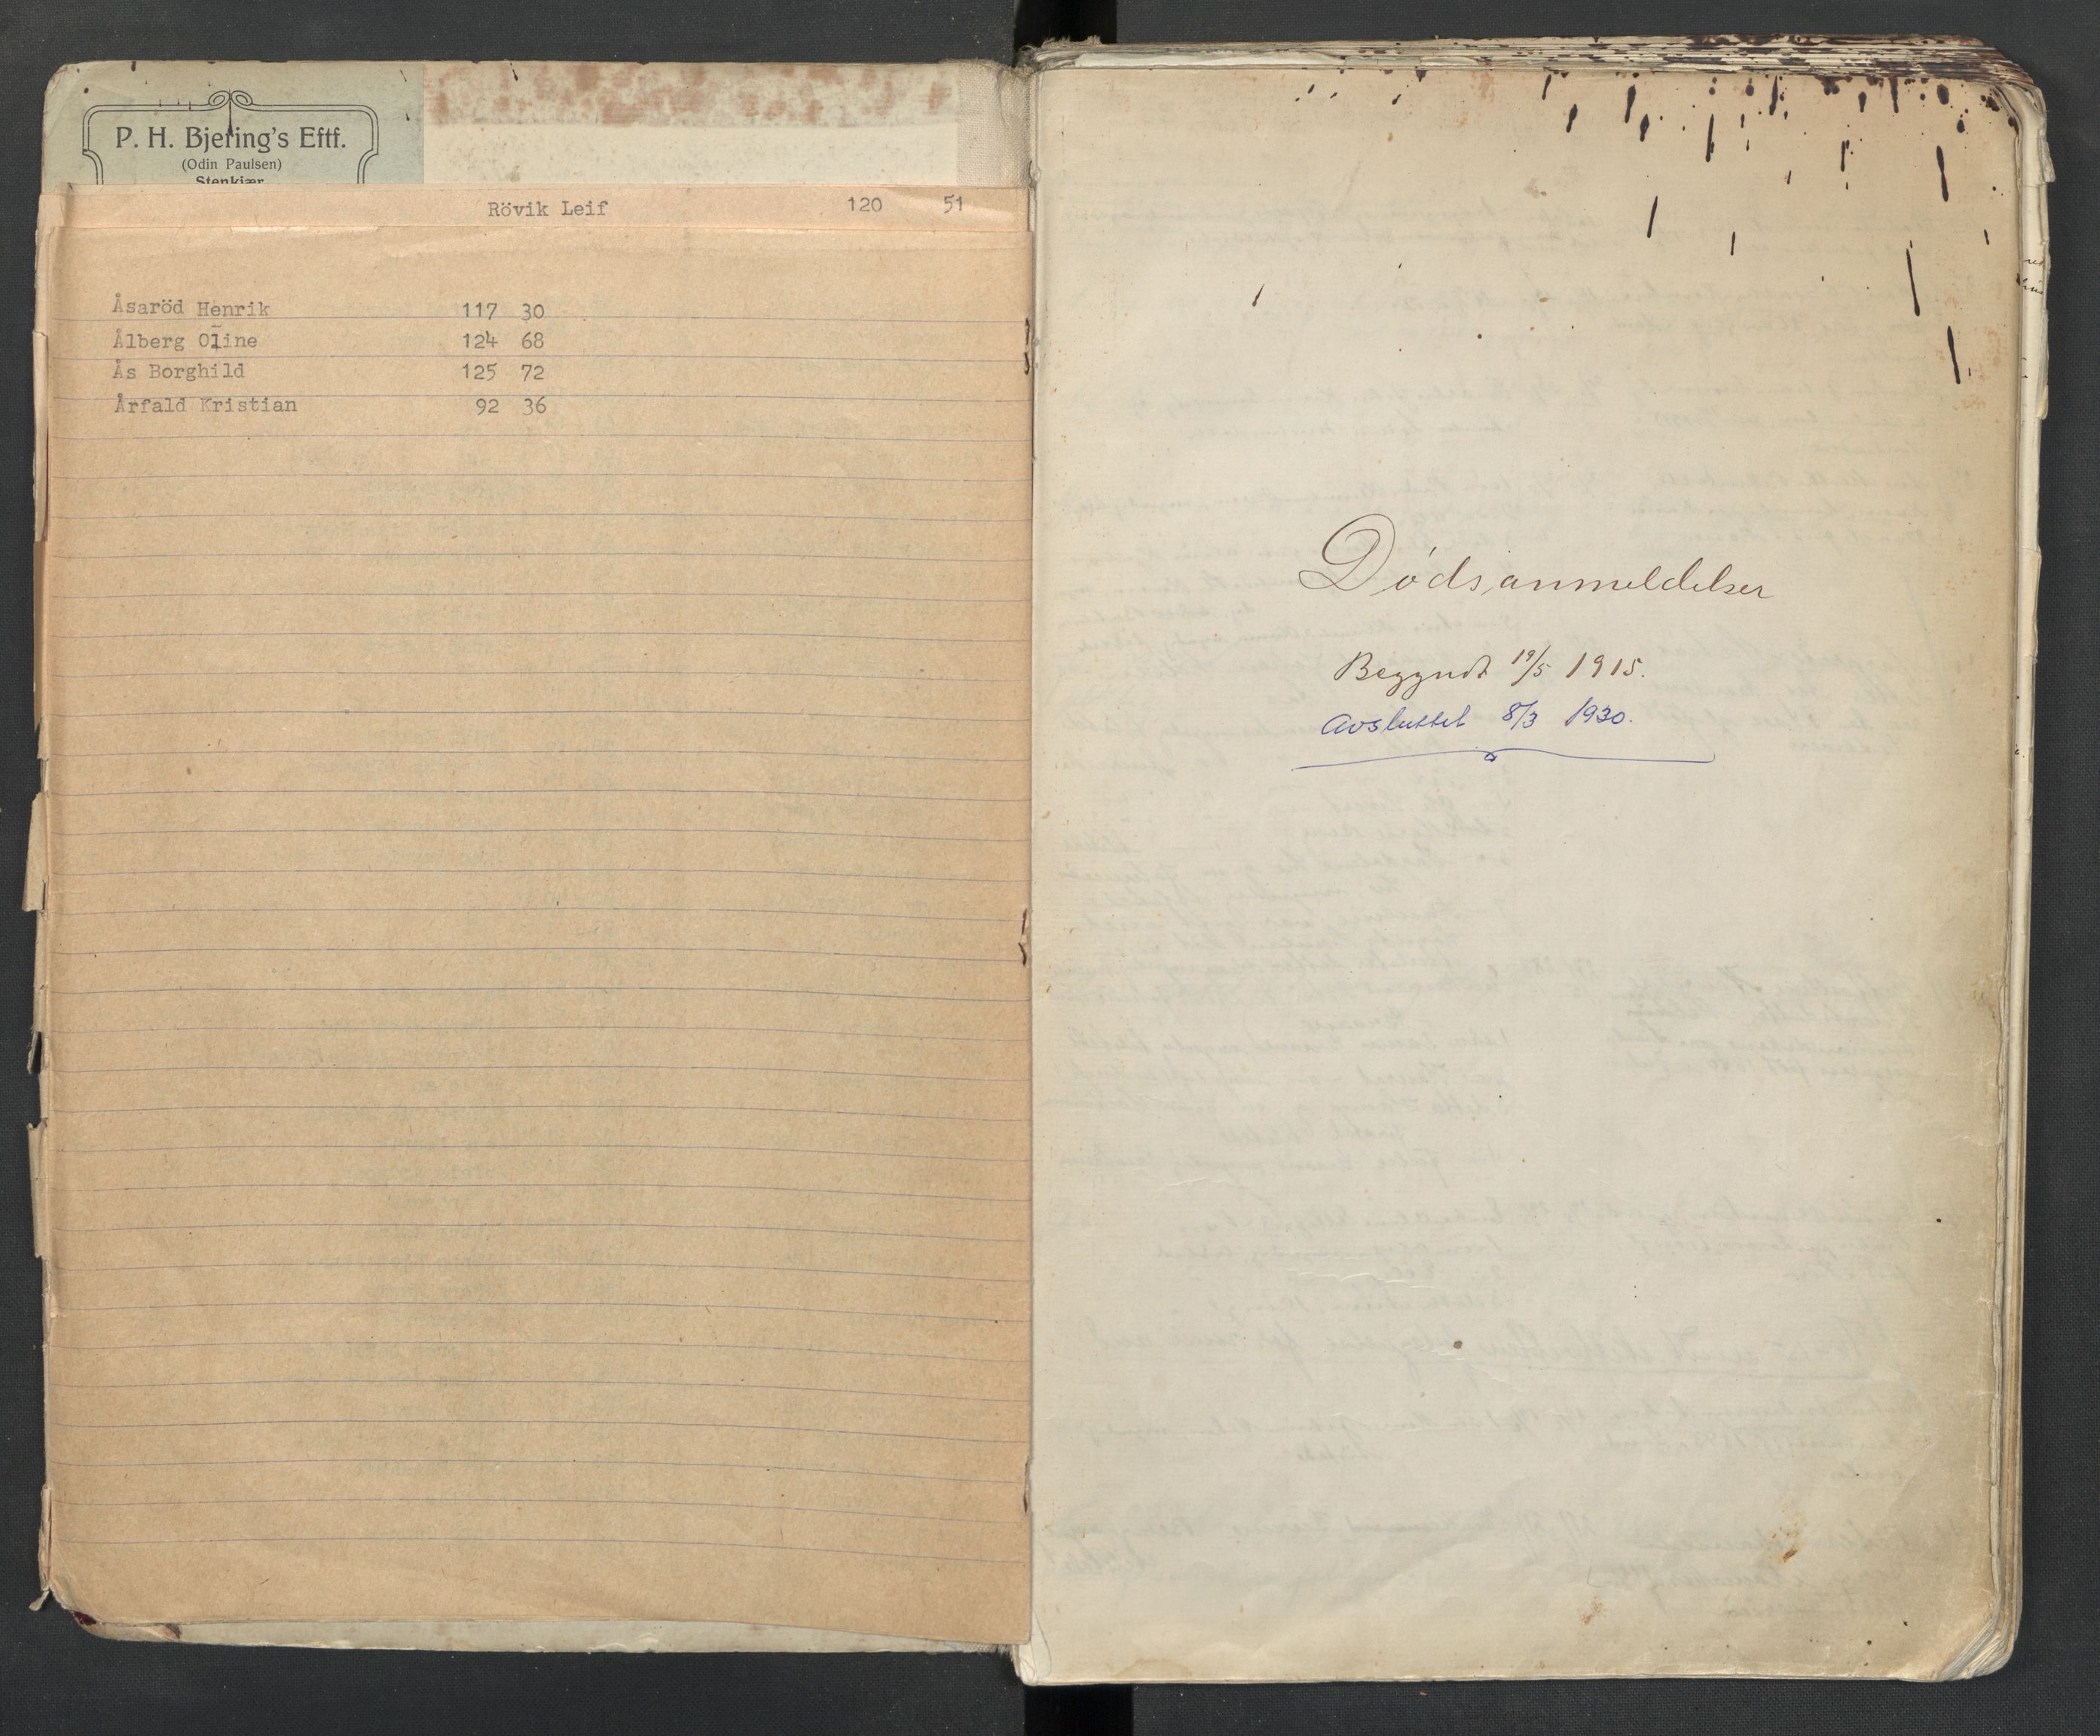 P. H. Bjering's Eftf.
(Odin Paulsen)
Stenkjær
Rövik Leif 120 51
Åsaröd Henrik 117 30
Ålberg Oline 124 68
Ås Borghild 125 72
Årfald Kristian 92 36
Dødsanmeldelser
Begyndt 19/5 1915.
Avsluttet 8/3 1930.